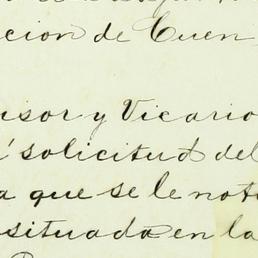 cion de Cuen
isor y Vicario
i solicitud del
a que se le noti
situada en la